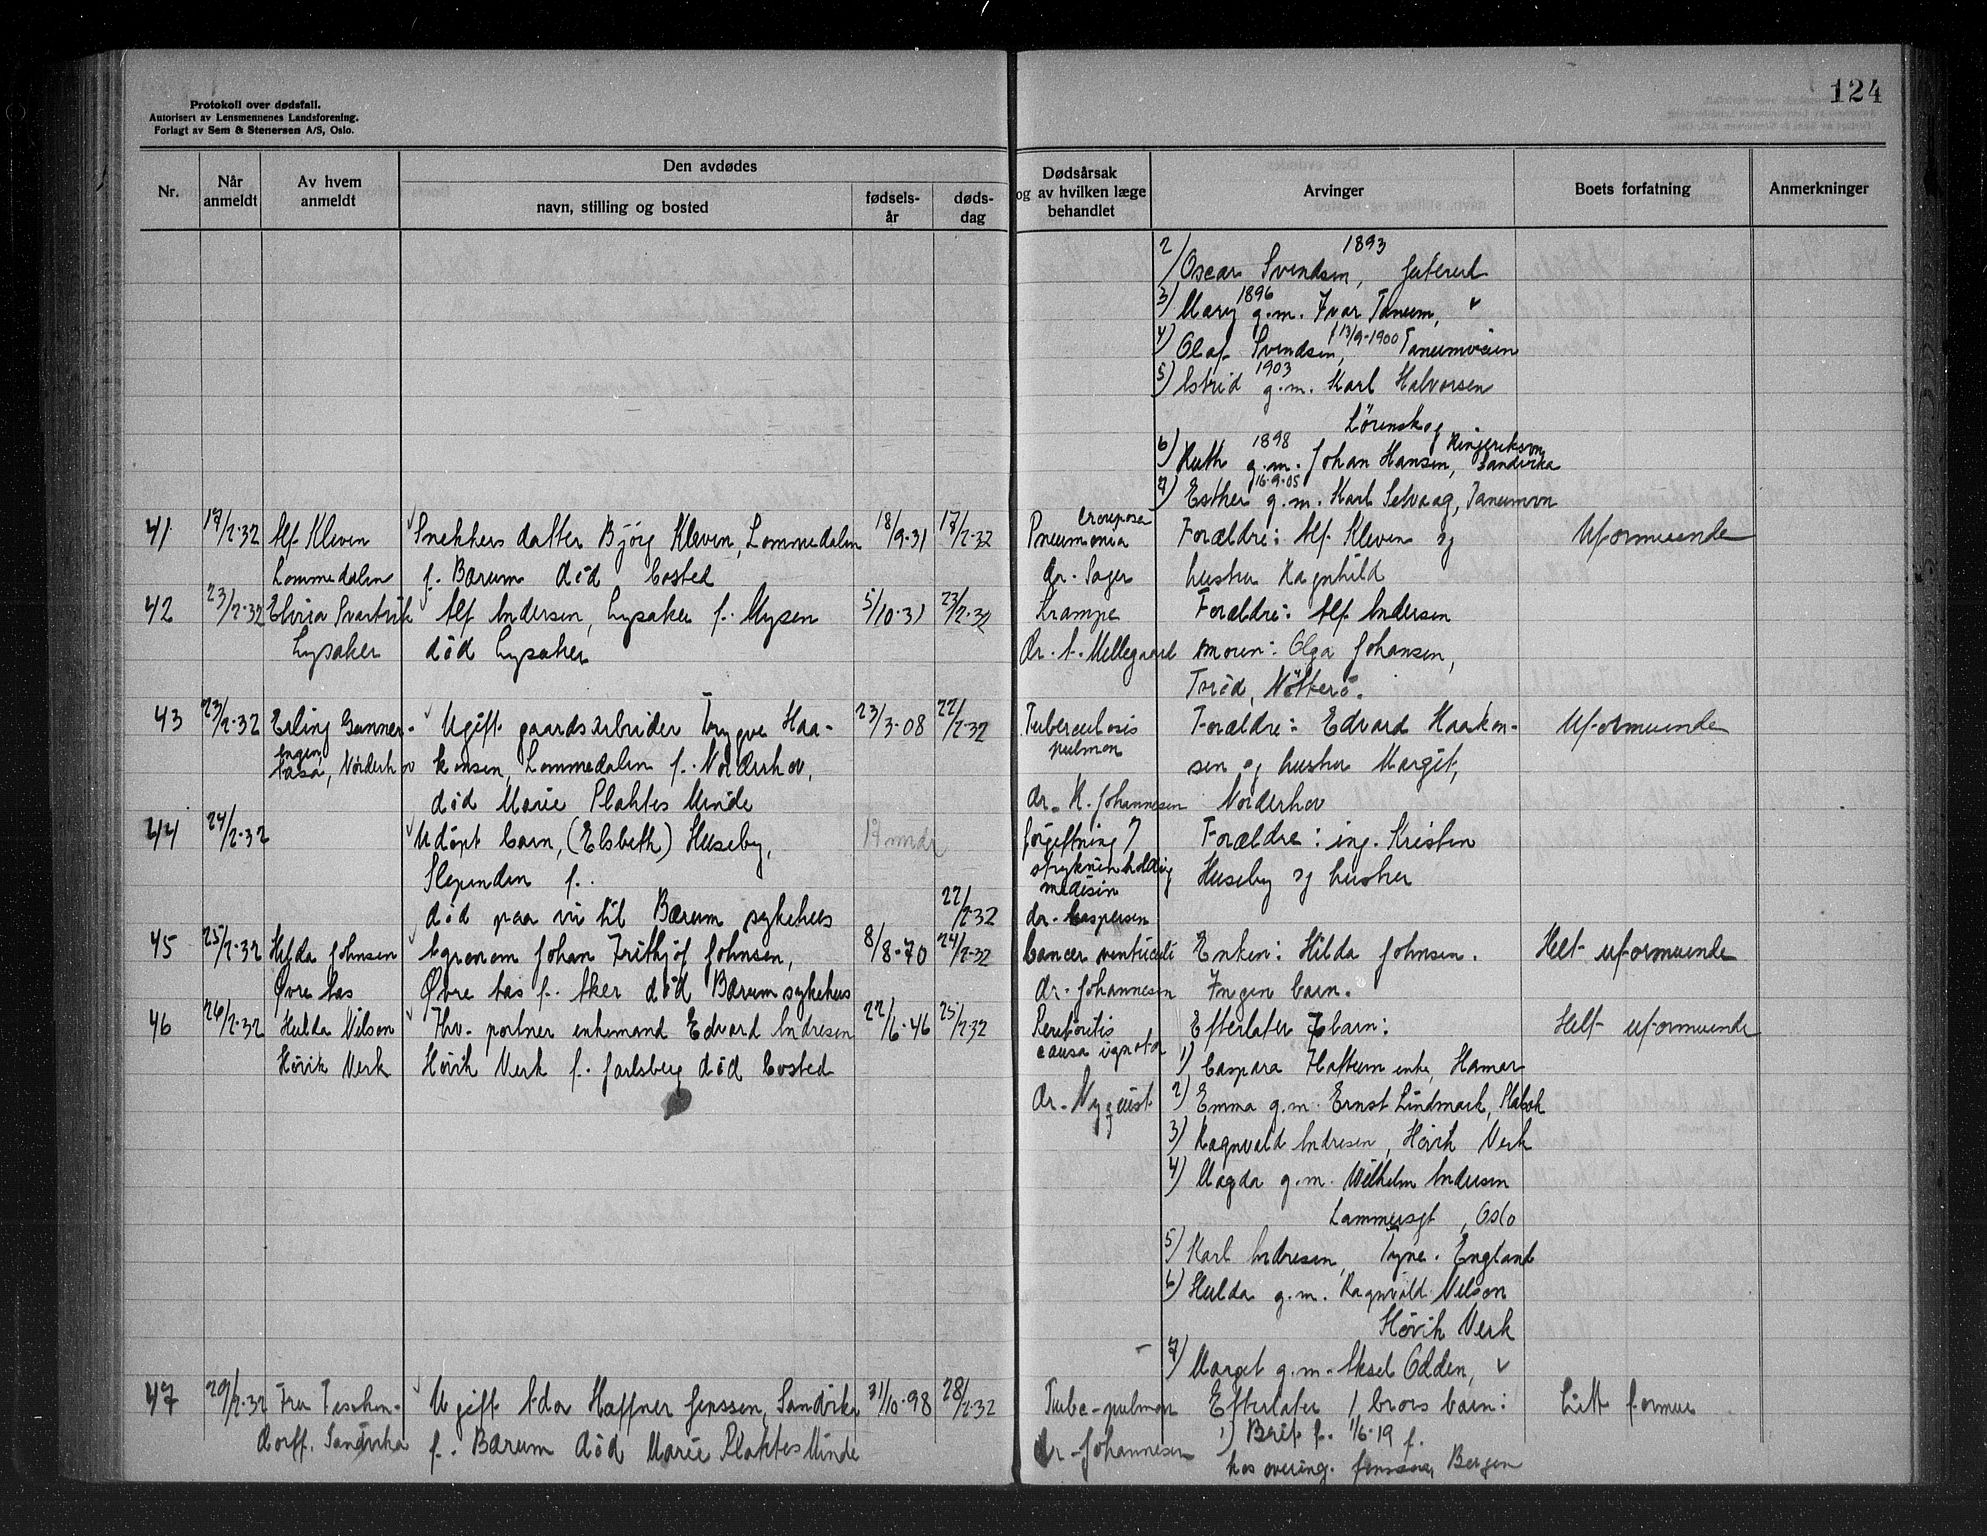 124
Protokoll over dødsfall.
Autorisert av Lensmennenes Landsforening.
Forlagt av Sem & Stenersen A/S, Oslo.
Nr.
Når anmeldt
Av hvem anmeldt
Den avdødes
navn, stilling og bosted
fødsels-år
døds-dag
Dødsårsak og av hvilken læge behandlet
Arvinger
Boets forfatning
Anmerkninger
1893
2) Oscar Svendsen,
1896
3) Mary g.m. Ivar Tanum, v
13/9-1900
4) Olaf Svendsen, Tanumveien
1903
5) Astrid g.m. Karl Halvorsen
Lørenskog
1898
6) Ruth g.m. Johan Hansen, Ringeriksvn Sandvika
16-9-05
7) Esther g.m. Karl Selvaag, Tanumvn
41 17/2-32 Alf Kleven Snekkers datter Bjørg Kleven, Lommedalen 18/9-31 17/2-32 Pneumonia crouposa Forældre: Alf Kleven og Uformuende
Lommedalen f. Bærum død bosted dr. Sager hustru Ragnhild
42 23/2-32 Elvira Svartvik Alf Andersen, Lysaker f. Mysen 5/10-31 23/2-32 Krampe Forældre: Alf Andersen
Lysaker død Lysaker Dr. A. Mellegaard moren: Olga Johansen,
Torød, Nøtterø.
43 23/2-32 Erling Gunner- Ugift gaardsarbeider Trygve Haa- 23/3-08 22/2-32 Tuberculosis Forældre: Edvard Haakon- Uformuende
engen, Aasa, Norderhov konsen, Lommedalen f. Norderhov, pulmon sen og hustru Margit,
død Marie Plahtes Minde dr. H. Johannesen Norderhov
44 24/2-32 Udøpt barn, (Elsbeth) Huseby, 19 mndr forgiftning / Forældre: ing. Kristen
Slependen f. strykninholdig medisin Huseby og hustru
død paa vei til Bærum sykehus 22/2-32 dr. Caspersen
45 25/2-32 Hilda Johnsen Agronom Johan Frithjof Johnsen, 8/8-70 24/2-32 Cancer ventriculi Enken: Hilda Johnsen. Helt uformuende
Øvre Aas Øvre Aas f. Aker død Bærum sykehus dr. Johannesen Ingen barn.
46 26/2-32 Hulda Nilson Fhv. portner enkemand Edvard Andresen 22/6-46 25/2-32 Peretonitis Efterlater 7 barn: Helt uformuende
Høvik Verk Høvik Verk f. Jarlsberg død bosted causa ignota 1) Caspara Haftum enke, Hamar
dr. Nyquist 2) Emma g.m. Ernst Lindmark,
3) Ragnvald Andresen, Høvik Verk
4) Magda g.m. Wilhelm Andersen
Lammersgt, Oslo
5) Karl Andresen, Tyne. England
6) Hulda g.m. Ragnvald Nilson
Høvik Verk
7) Margit g.m. Aksel Odden, v
47 29/2-32 Fru Teschen- Ugift Ada Haffner Jenssen, Sandvika 31/10-98 28/2-32 Tube-pulmon Efterlater 1 brors barn: Litt formue
dorff. Sandvika f. Bærum død Marie Plahtes Minde dr. Johannesen 1) Berit f. 1/6-19 f.
hos overing. Jenssen, Bergen